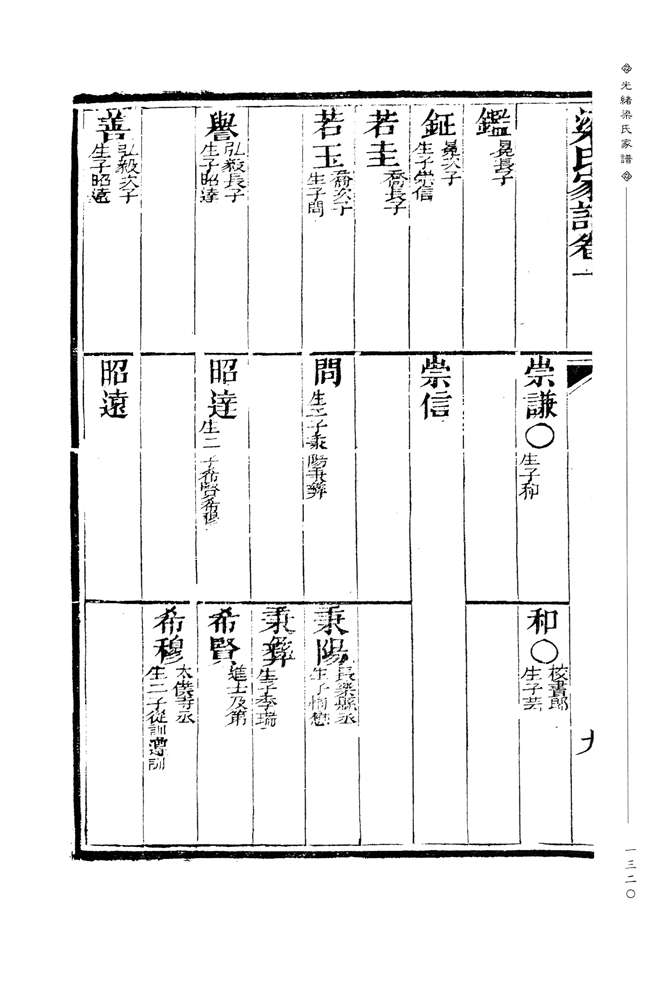 光緒梁氏家譜
一三二〇
梁氏家譜卷一
九
鑑
晃長子
鉦
晃次子
生子崇信
若圭
喬長子
若玉
喬次子
生子問
譽
弘毅長子
生子昭達
善
弘毅次子
生子昭遠
崇謙〇
生子和
崇信
問
生二子秉陽秉彝
昭達
生二子希賢希穆
昭遠
和〇
校書郎
生子芸
秉陽
長樂縣丞
秉彝
生子季瑞
希賢
進士及第
希穆
太僕寺丞
生二子從訓遵訓